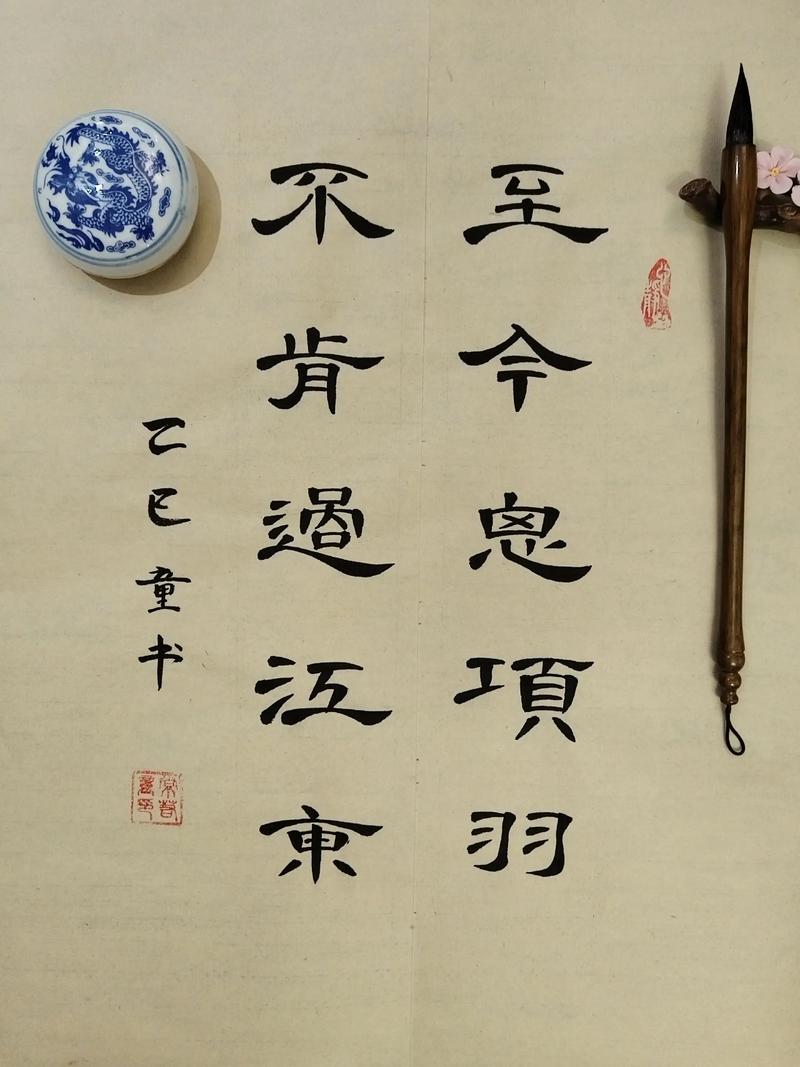 至今思項羽
不肯過江東
乙巳童书